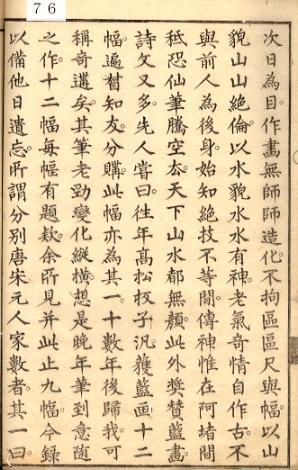 76
次日為目。作畫無師師造化。不拘區區尺與幅。以山
貌山山絶倫。以水貌水水有神。老氣奇情自作古。不
與前人為後身。始知絶技不等閒。傳神惟在阿堵間
秪恐仙筆騰空去。天下山水都無顏。此外奬賛藍畫
詩文又多。先人嘗曰。往年高松杈子汎蒦藍画十二
幅。遍啓知友。分購此幅亦為其一。十數年後歸我。可
稱奇遘矣。其筆老勁。變化縱橫。想是晚年筆到意隨
之作。十二幅每幅有題欵。余所見并此止九幅。今録
以備他日遺忘。所謂分別唐宋元人家數者。其一曰。